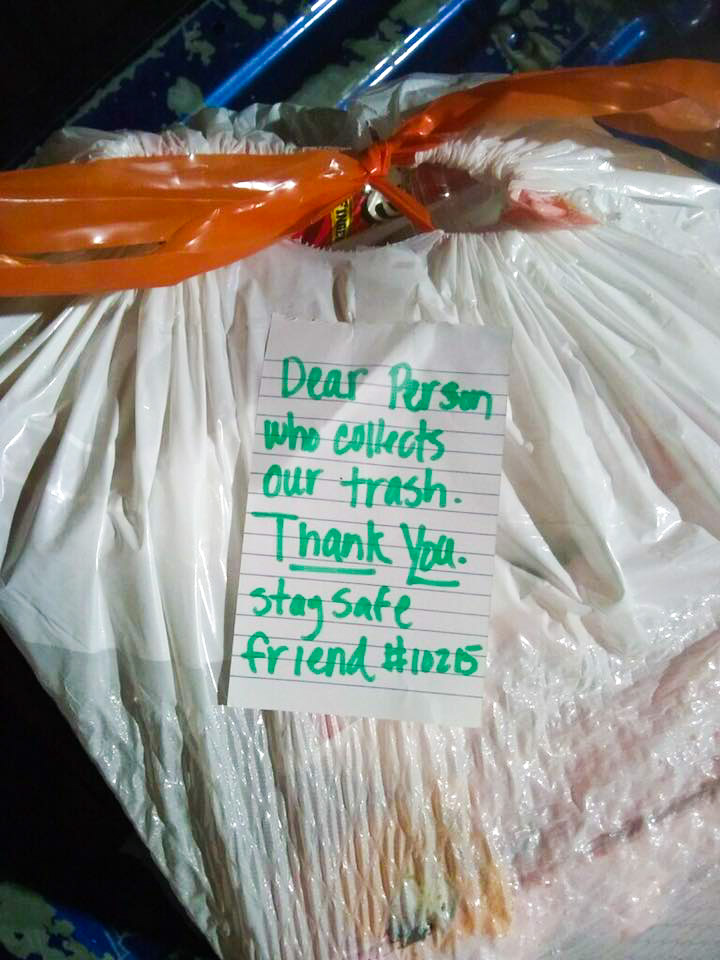 Dear Person
who collects
our trash.
Thank You.
stay safe
friend #10215